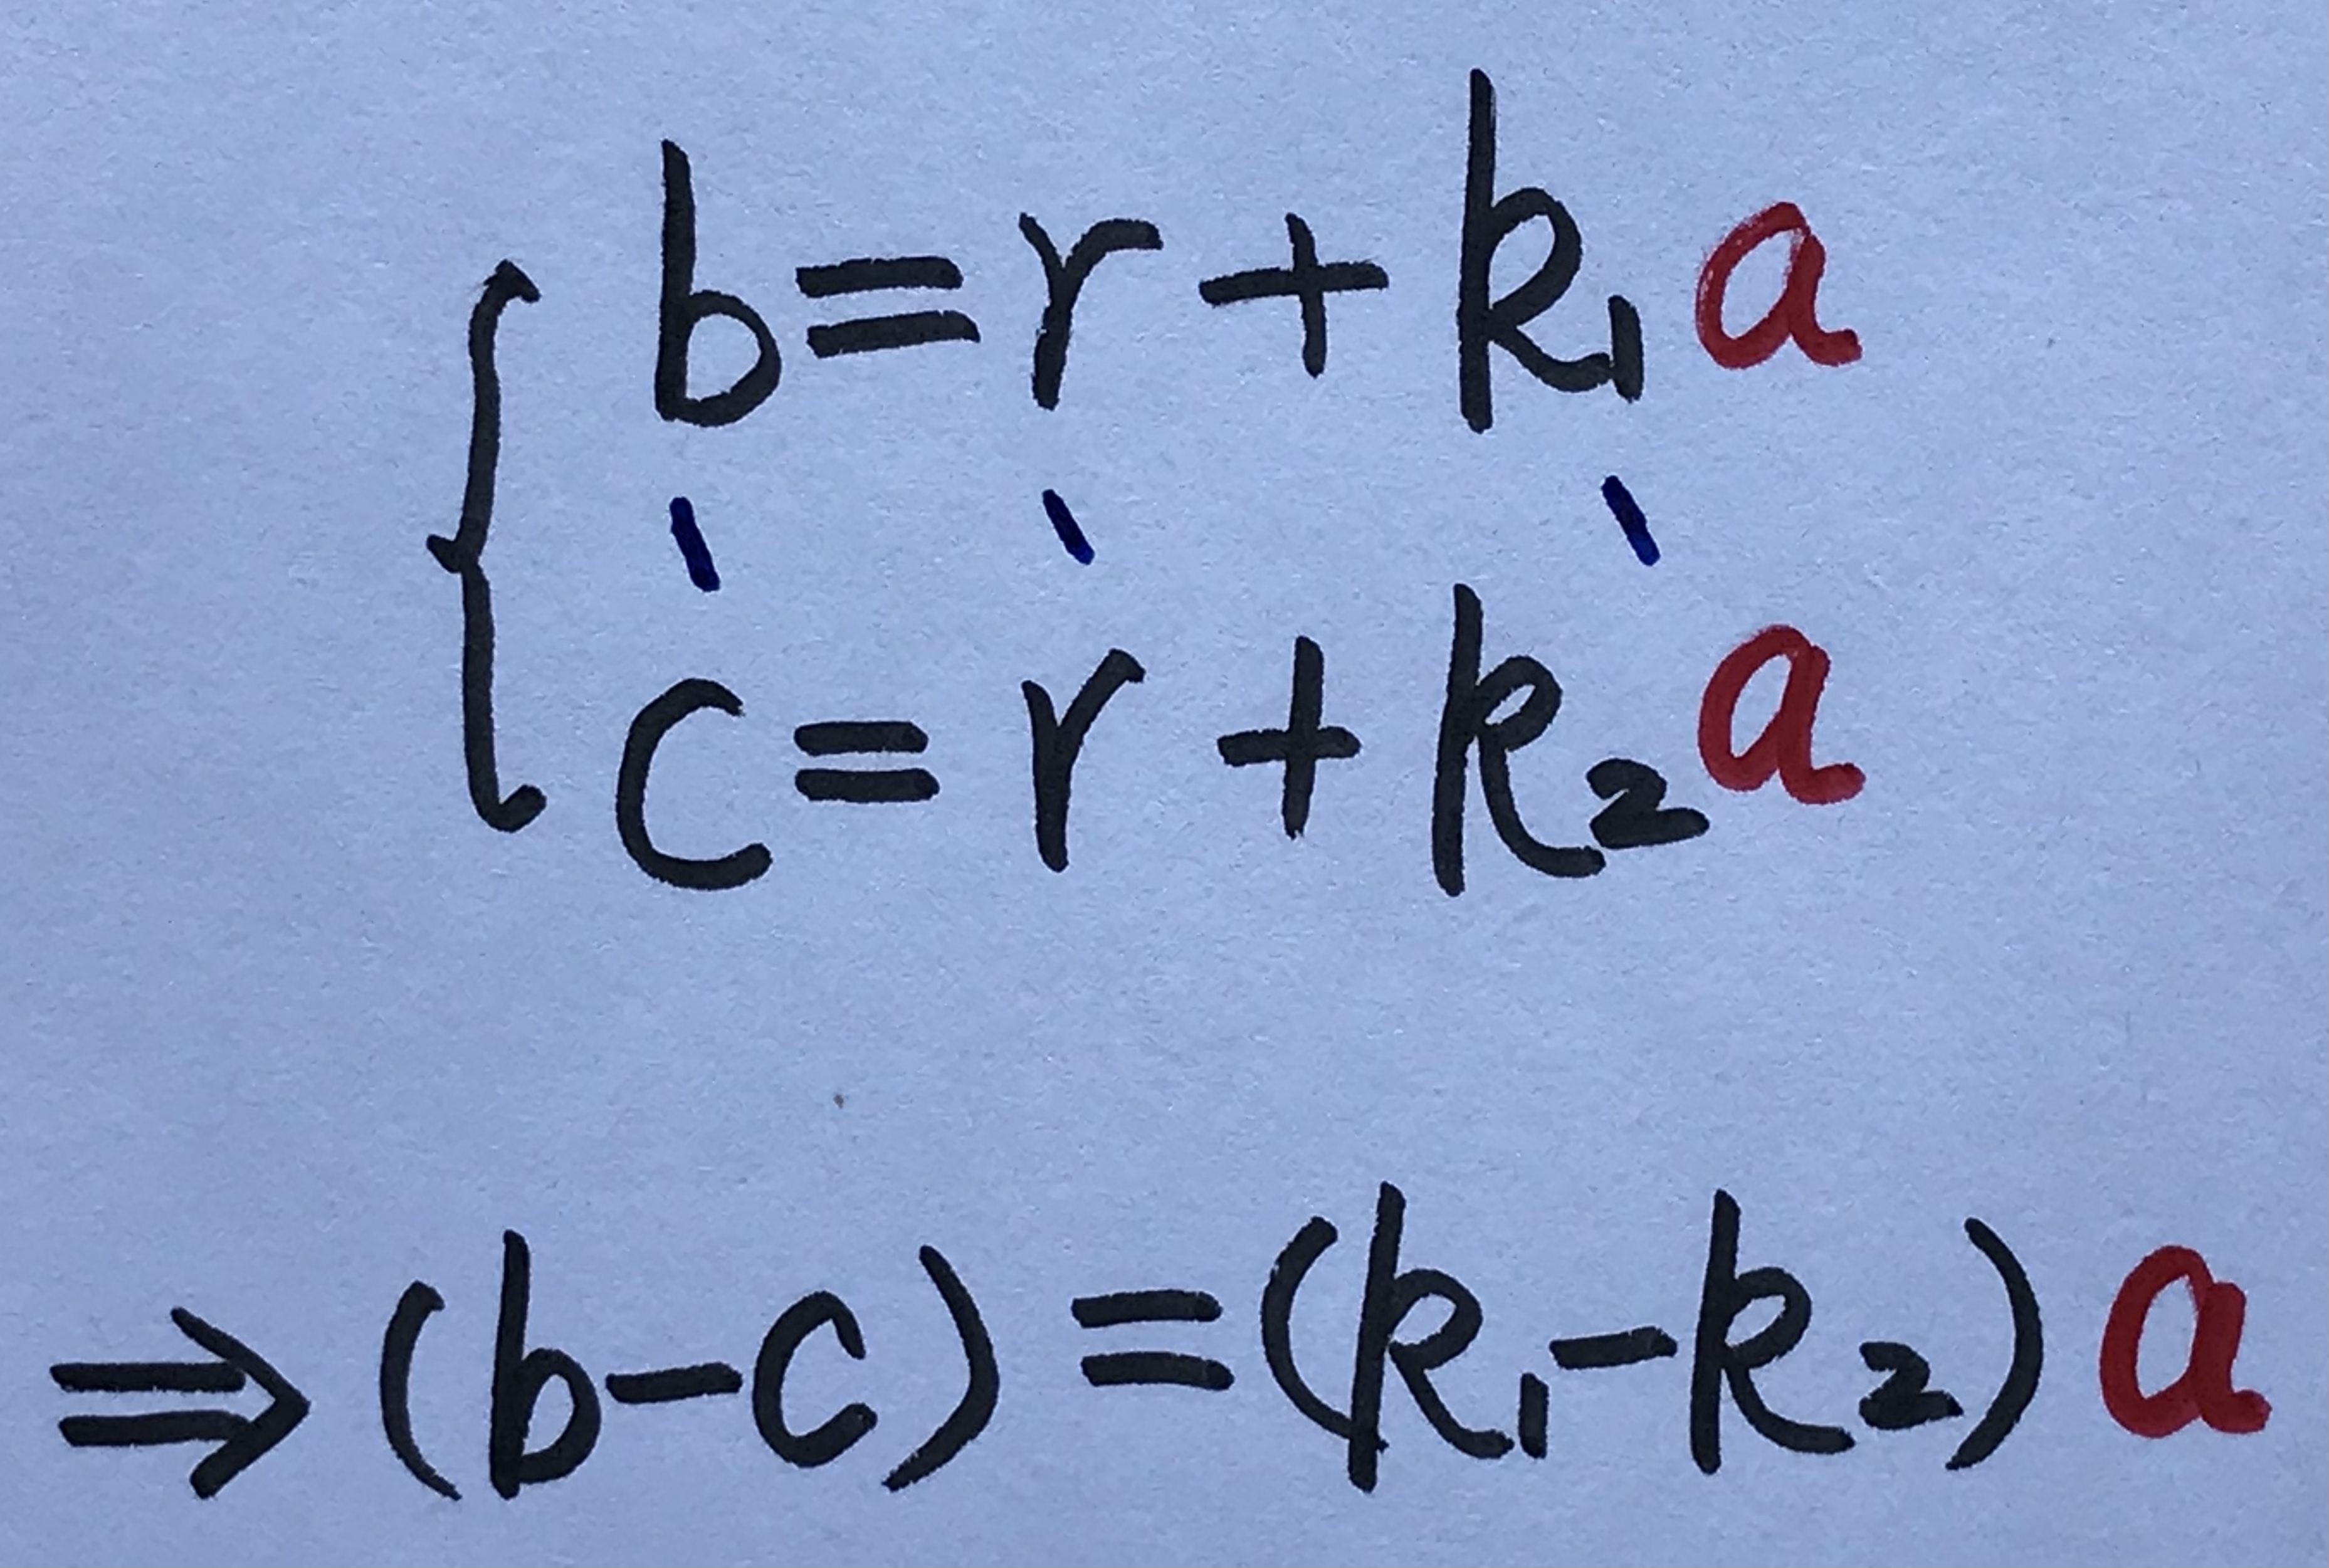 b=r+k₁a
c=r+k₂a
⇒(b-c)=(k₁-k₂)a